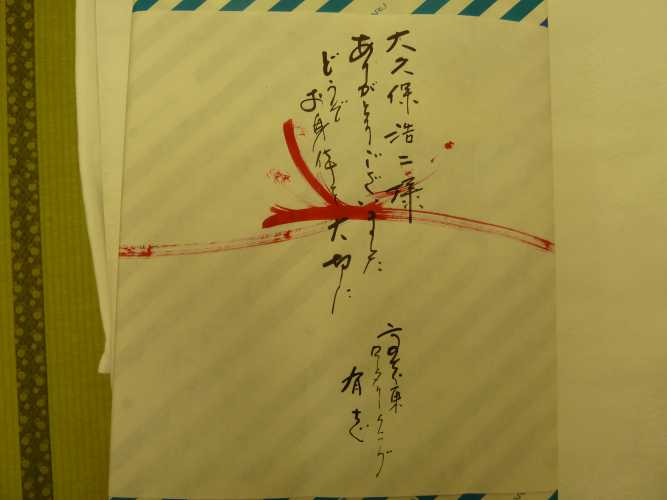 大久保浩二様
ありがとうございました
どうぞ
お身体を大切に
ロータリークラブ
有志